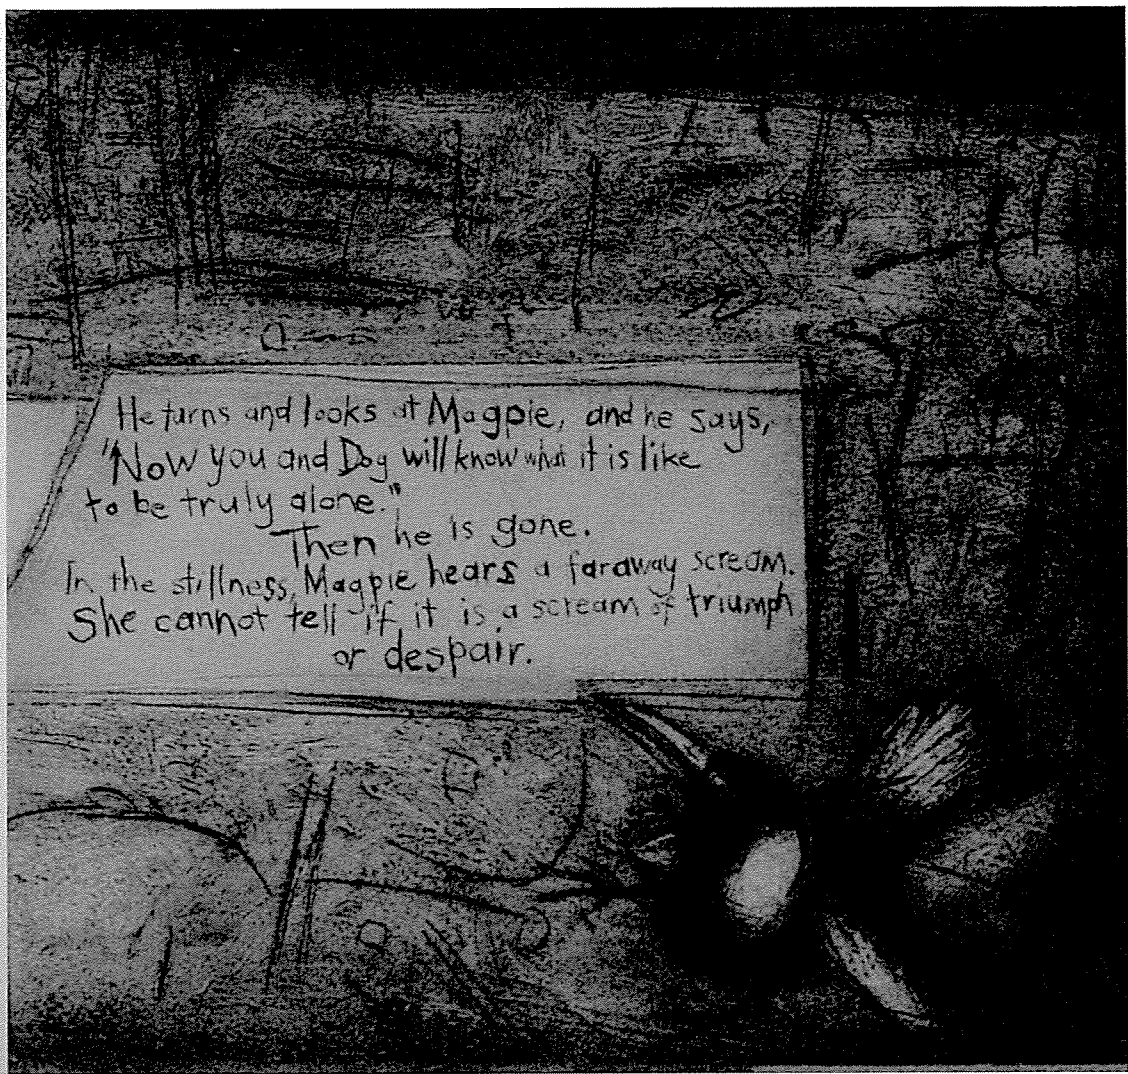 He turns and looks at Magpie, and he says,
"Now you and Dog will know what it is like
to be truly alone."
Then he is gone.
In the stillness, Magpie hears a faraway scream.
She cannot tell if it is a scream of triumph
or despair.